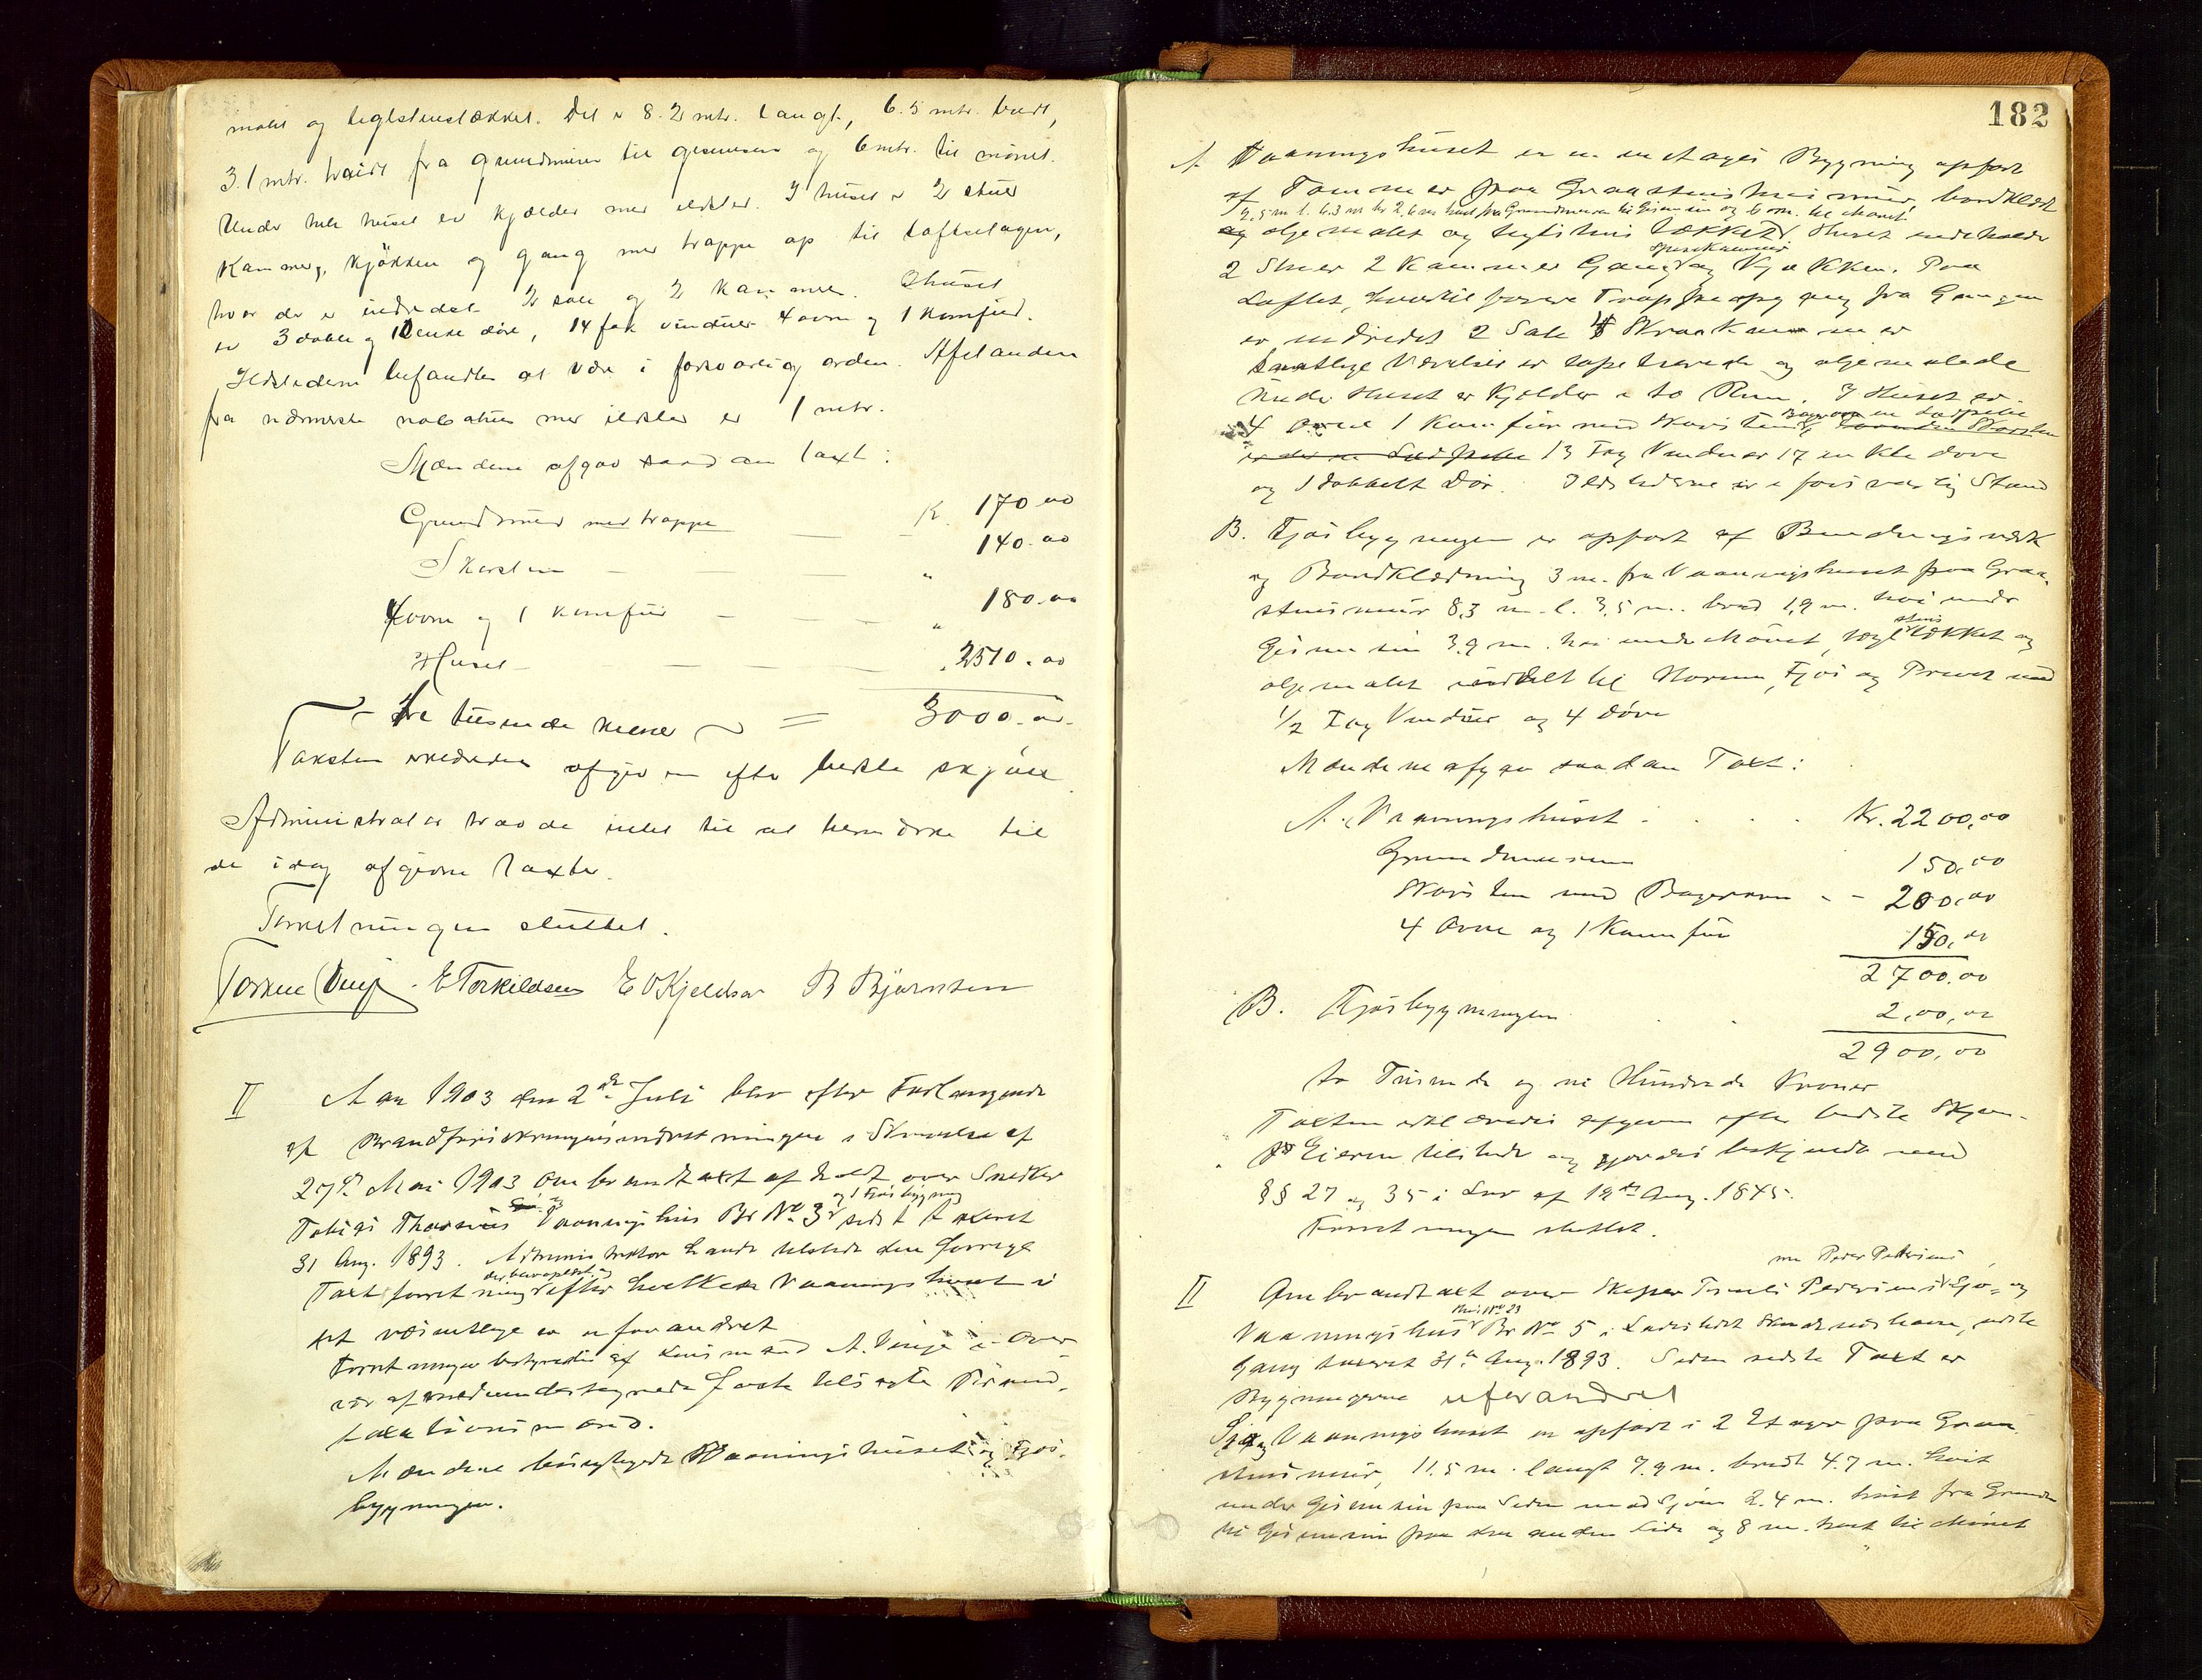 malet og teglstenstækket. Det er 8.2 mtr. langt, 6.5 mtr. bredt,
3.1 mtr. høidt fra grundmuren til gesimsen og 6 mtr. til mønet.
Under hele huset er kjælder med ildsted. I huset er 2 stuer
Kammers, kjøkken og gang med trappe op til loftsetagen,
hvor der er indredet 2 sale og 2 kammer. I huset
er 3 doble og 10 enkle døre, 14 fag vinduer 4 ovne og 1 komfur.
Ildstederne befandtes at være i forsvarlig orden. Afstanden
fra nærmeste nabohus med ildsted er 1 mtr.
Mændene afgav saadan taxt:
Grundmur med trappe K. 170.00
Skorsten " 140.00
4 ovne og 1 komfur " 180.00
Huset 2510.00
Tre tusinde kroner = 3000.00
Taksten erklæredes afgiven efter bedste skjøn
Administrator havde intet til at bemærke til
de idag afgivne taxter.
Forretningen sluttet.
E Torkildsen E O Kjeldsen B Bjørnsen
II Aar 1903 den 2de Juli blev efter Forlangende
af Brandforsikringsindretningen i Skrivelse af
27de Mai 1903 Ombrandtaxt afholdt over Snedker
og 1 Fjøsbygning
Tobias Vaaningshus Br No. 3 sidst taxeret
31 Aug. 1893. Administrator havde tilstede den forrige
Taxtforretning efter hvilken Vaaningshuset i
det væsentlige er uforandret
Forretningen bestyredes af A. Vinje i Over-
vær af medundertegnede faste tilsagte Brand-
taxationsmænd.
Mændene besigtigede Vaaningshuset og Fjøs-
bygningen.
182
A Vaaningshuset er en en etages Bygning opført
af Tømmer paa Graastensmur, bordklædt
9,5 m l. 6.3 m br 2,6 m høit fra Grundmuren til Gesimsen og 6 m. til Mønet
og oljemalet og teglstens tækket Huset indeholder
Spisekammer
2 Stuer 2 Kammer Gang og Kjøkken. Paa
Loftet, hvortil fører Trappeopgang fra Gangen
er indredet 2 Sale 4 Skraakammer
Samtlige Værelser er tapetserede og oljemalede
Under Huset er Kjelder i to Rum. I Huset er
4 Ovne 1 Komfur med Skorsten
13 Fag Vinduer 17 enkle døre
og 1 dobbelt Dør. Ildstederne er i forsvarlig Stand
B. Fjøsbygningen er opført af Bindingsværk
og Bordklædning 3 m. fra Vaaningshuset paa Graa-
stensmur 8,3 m. l. 3,5 m. bred 1,9 m. høi under
stens
Gesimsen 3.9 m. høi under Mønet, tegltækket og
oljemalet inddelt til Fjøs og Privet med
1/2 Fag Vinduer og 4 Døre
Mændene afgav saadan Taxt:
A. Vaaningshuset Kr. 2200,00
Grundmuren 150,00
Skorsten med Bagerovn - - 200,00
4 Ovne og 1 Komfur 150,00
2700,00
B. Fjøsbygningen 2,00,00
2900,00
to Tusinde og ni Hundrede Kroner
Taxten erklæredes afgiven efter bedste Skjøn-
Eieren tilstede og gjordes bekjendt med
§§ 27 og 35 i Lov af 19de Aug. 1845.
Forretningen sluttet.
nu Peder Pedersens
II Ombrandtaxt over Skipper Pedersens Sjø- og
Hus No 23
Vaaningshus Br No 5 i Ladestedet Skudeneshavn, sidste
Gang taxeret 31te Aug. 1893. Siden sidste Taxt er
Bygningerne uforandret
Sjø og Vaaningshuset er opført i 2 Etager paa Graa
stensmur, 11.5 m. langt 7.9 m. bredt 4.7 m. høit
under Gesimsen paa Siden mod Sjøen 2.4 m. høit fra Grunden
til Gesimsen paa den anden Side og 8 m. høit til Mønet